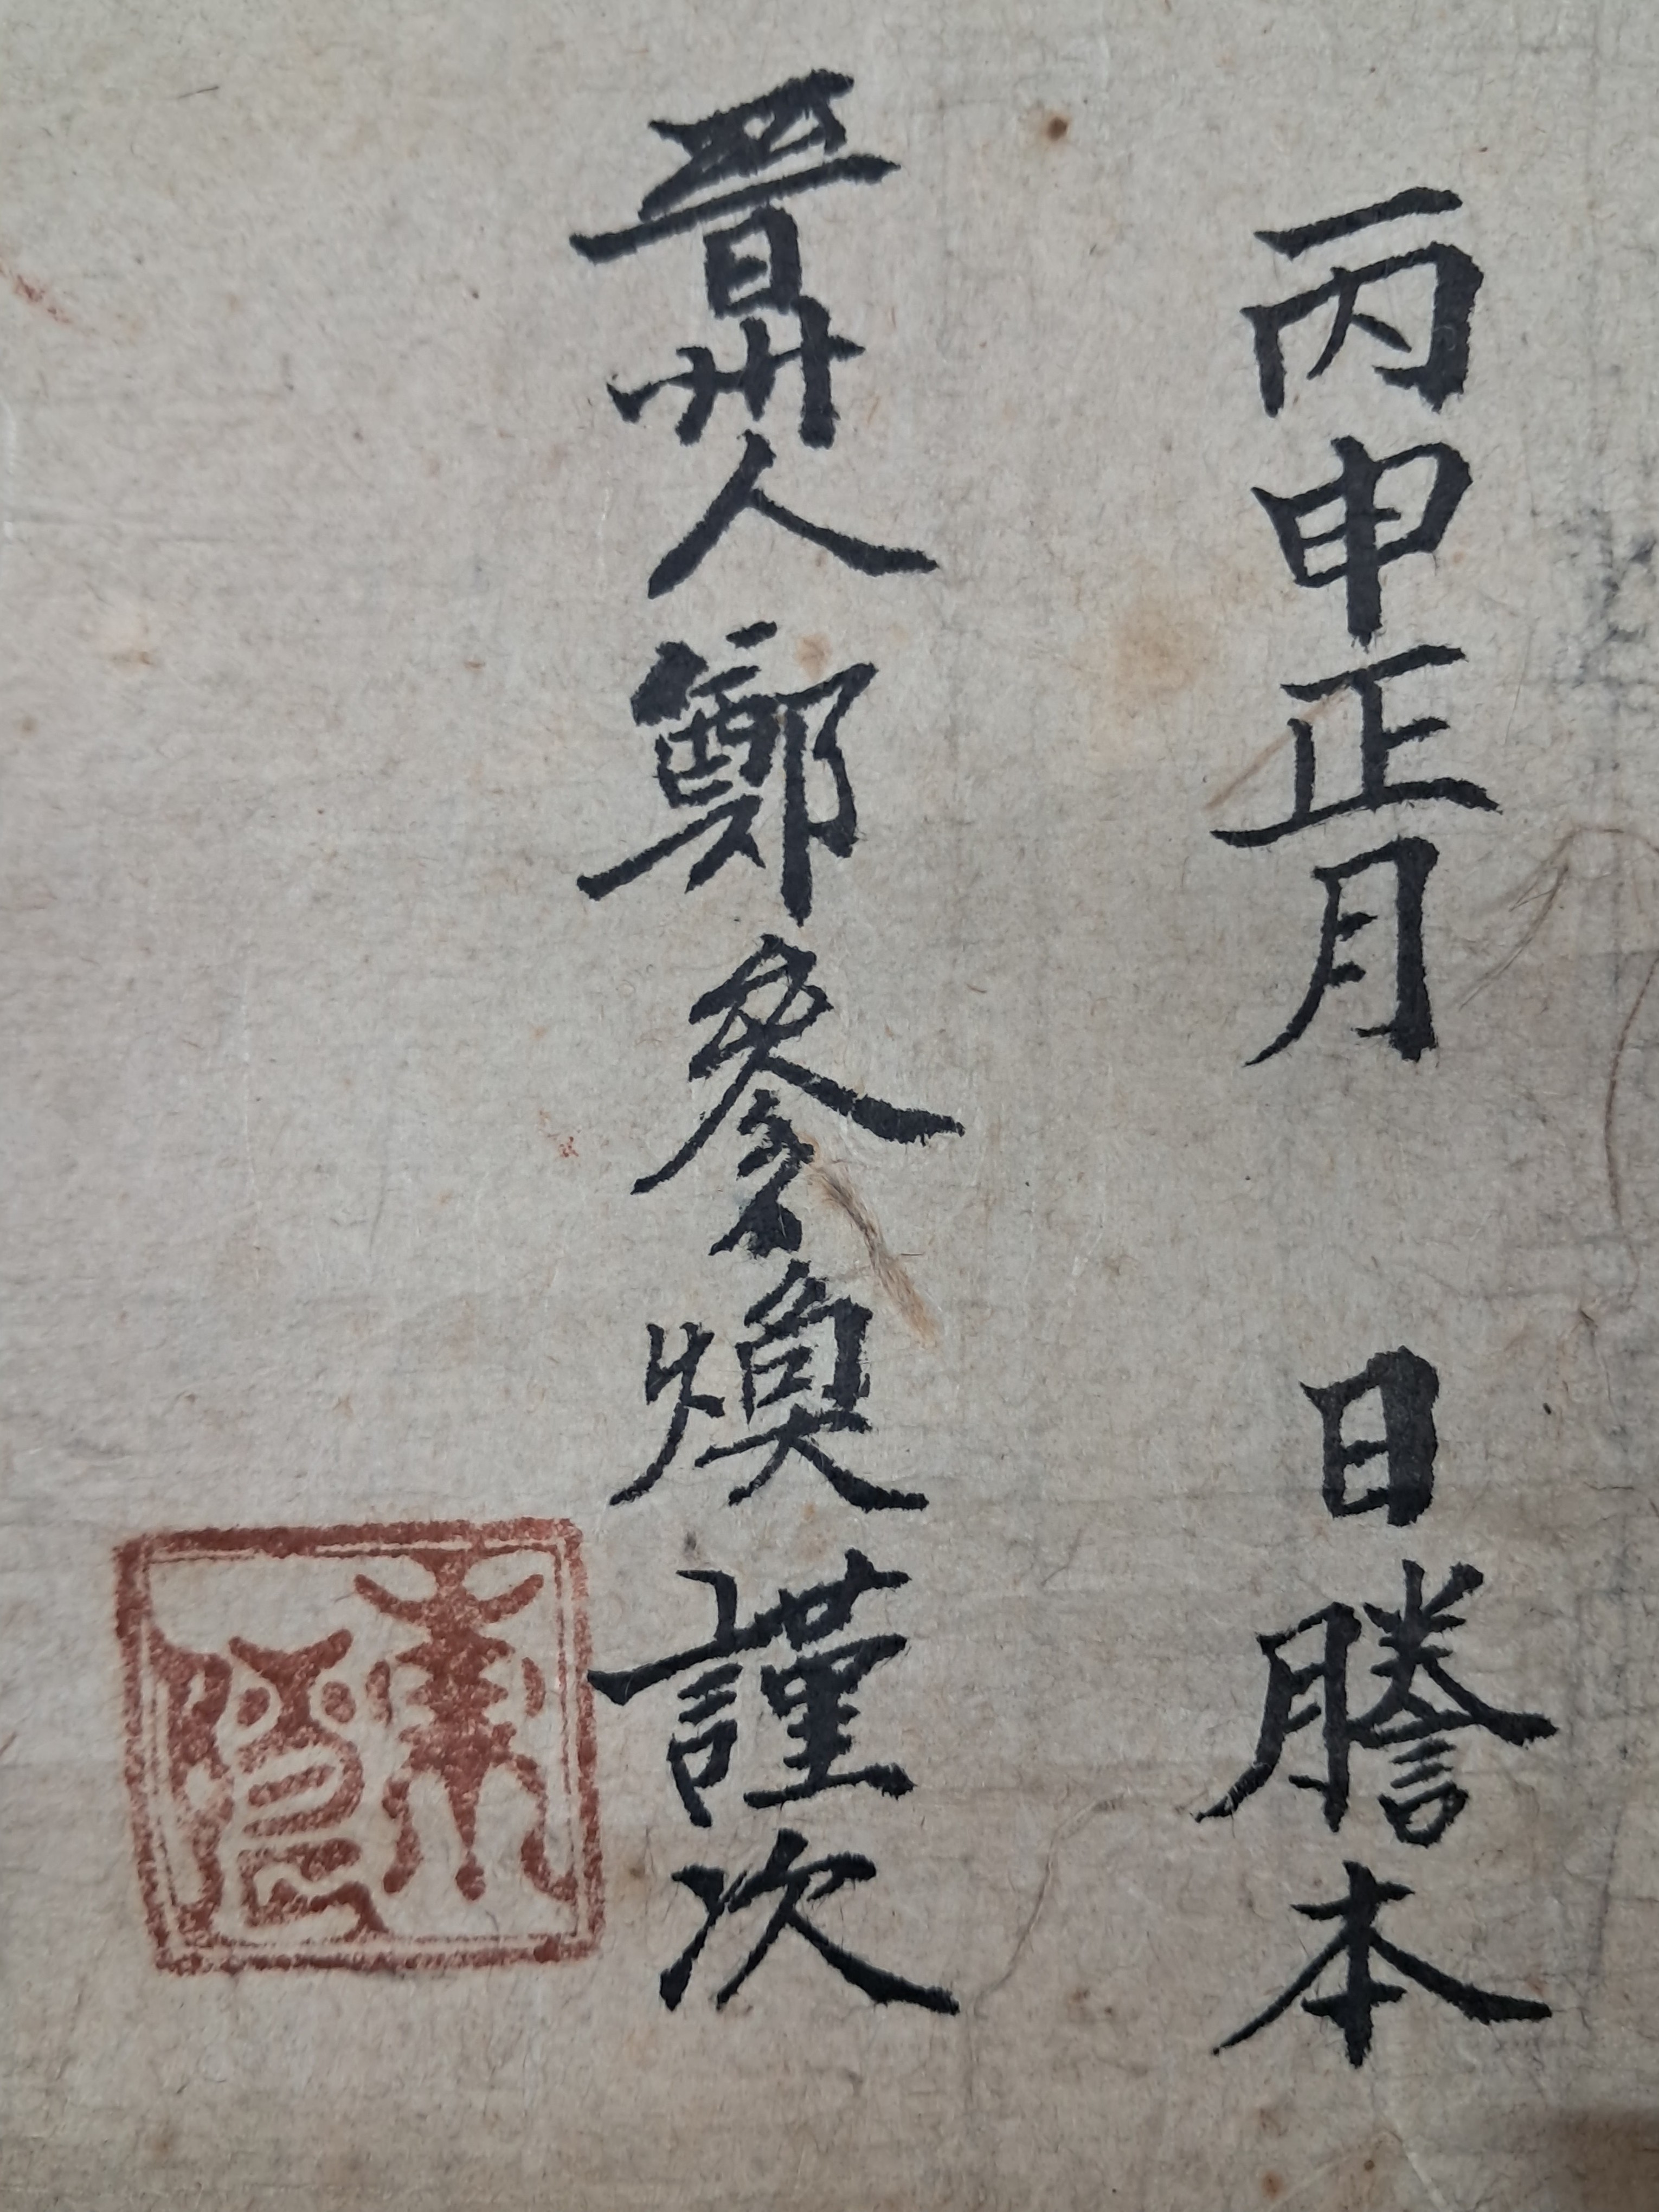 丙申正月 日謄本
晋州人鄭參煥謹次